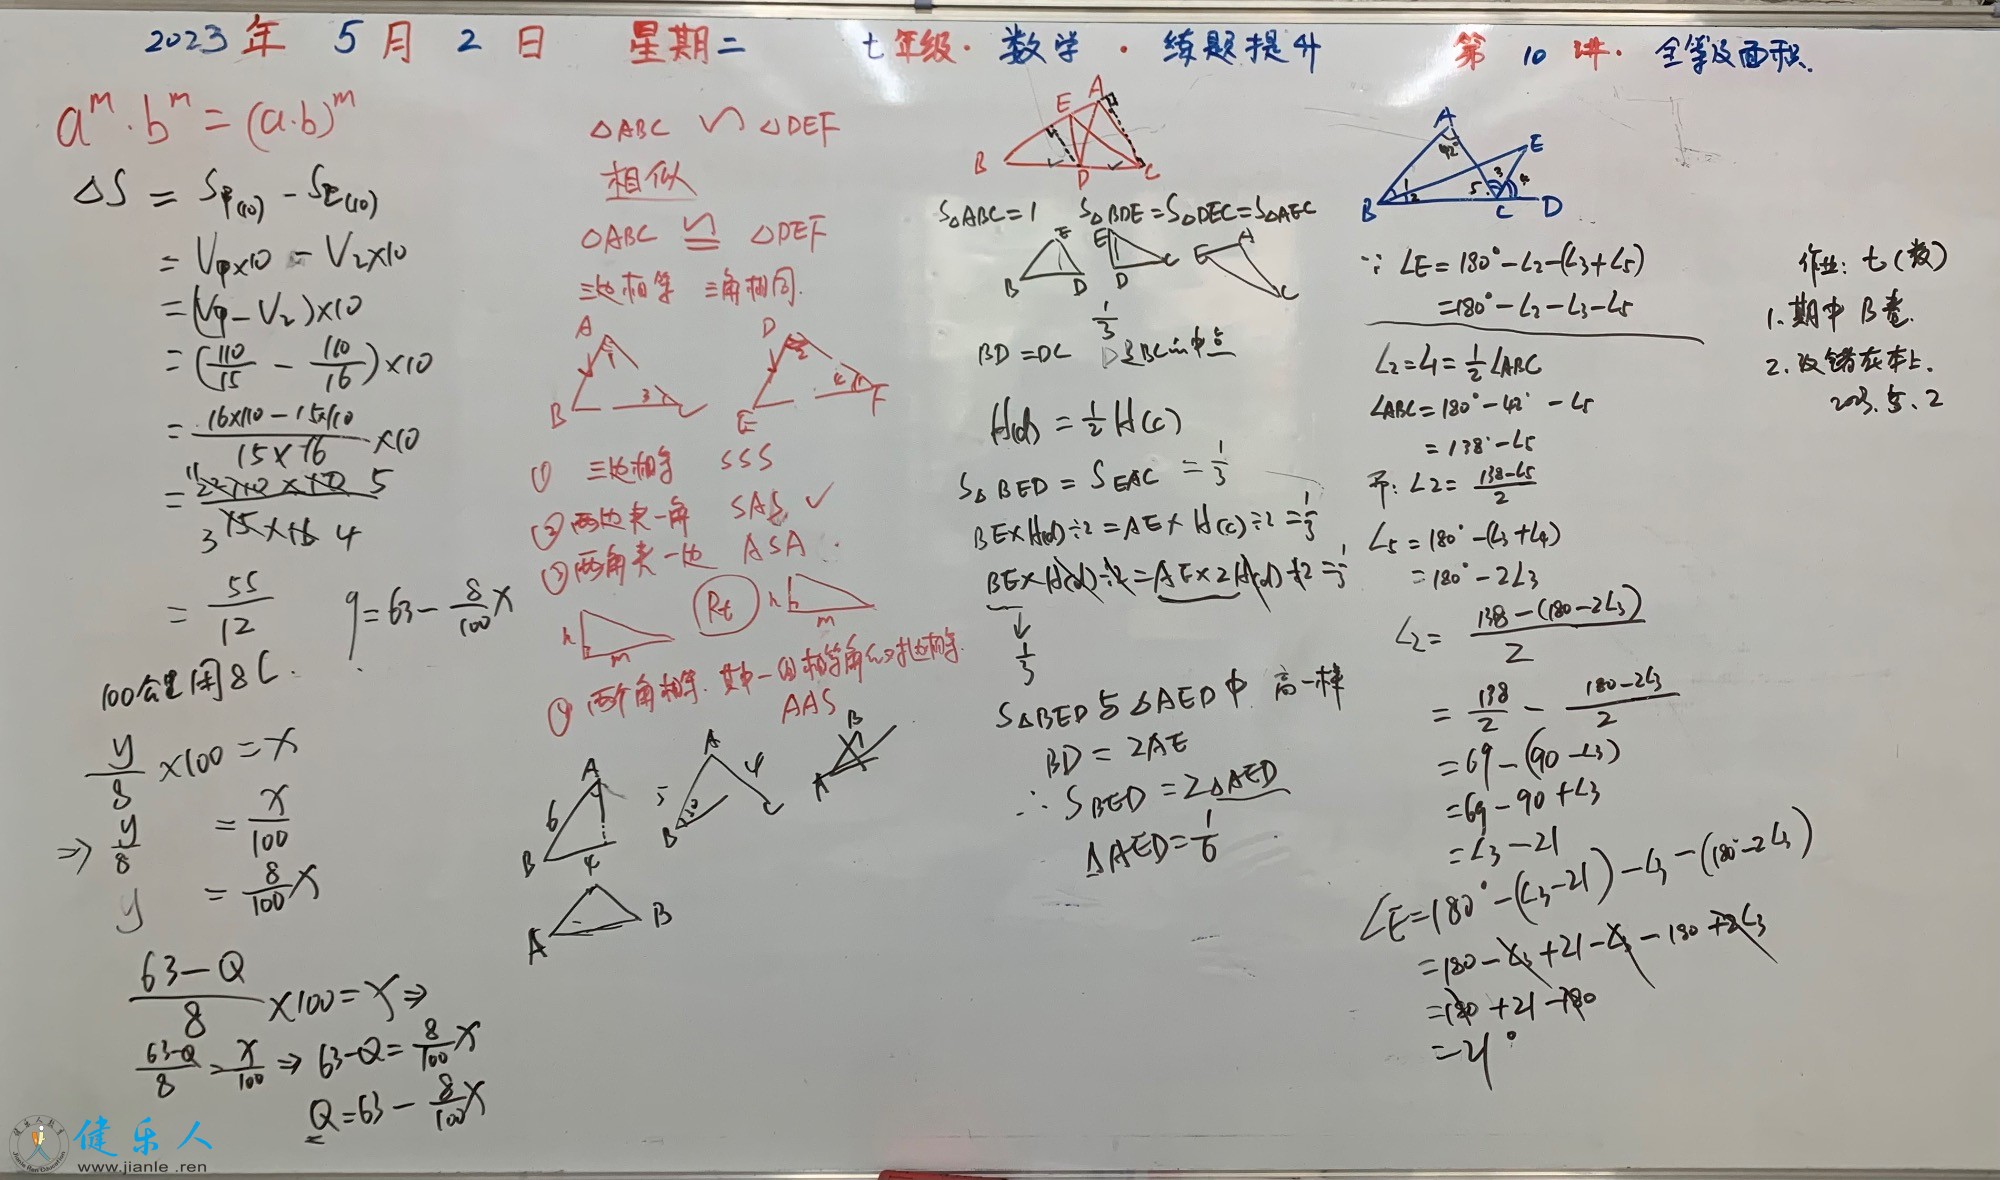 2023年 5月 2日 星期二 七年级·数学·练题提升 第10讲·全等及面积.
a^m·b^m=(a·b)^m
△S = S甲(10) - S乙(10)
= V甲×10 - V乙×10
=(V甲-V乙)×10
=(110/15 - 110/16)×10
= (16×110-15×110)/(15×16) ×10
= 55/12
q=63-8/100x
100公里用8L.
y/8 ×100=x
⇒ y/8 = x/100
y = 8/100x
(63-Q)/8 ×100=x⇒
(63-Q)/8 = x/100 ⇒ 63-Q=8/100x
Q=63-8/100x
△ABC ∽ △DEF
相似
△ABC ≌ △DEF
三边相等 三角相同.
A
B
C
D
E
F
① 三边相等 SSS
②两边夹一角 SAS ✓
③两角夹一边 ASA.
h
m
Rt
h
m
④两个角相等.其中一组相等角的对边相等.
AAS
A
6
B
4
A
5
4
B
30
C
B
A
A
B
E A
B
D
C
S△ABC=1 S△BDE=S△DEC=S△AEC
E
B D
E
D C
E A
C
1/3
BD=DC D是BC的中点
H(d)=1/2H(c)
S△BED=SEAC=1/3
BE×H(d)÷2=AE×H(c)÷2=1/3
BE×H(d)÷2=AE×2H(d)÷2=1/3
↓
1/3
S△BED与△AED中 高一样
BD=2AE
∴SBED=2△AED
△AED=1/6
A
42°
E
1
2
3
4
5
B
C
D
∵∠E=180°-∠2-(∠3+∠5)
=180°-∠2-∠3-∠5
∠2=∠1=1/2∠ABC
∠ABC=180°-42°-∠5
=138°-∠5
即:∠2=(138-∠5)/2
∠5=180°-(∠3+∠4)
=180°-2∠3
∠2=(138-(180-2∠3))/2
=138/2-(180-2∠3)/2
=69-(90-∠3)
=69-90+∠3
=∠3-21
∠E=180°-(∠3-21)-∠3-(180°-2∠3)
=180-∠3+21-∠3-180+2∠3
=180+21-180
=21°
作业:七(数)
1.期中B卷.
2.改错在本上.
2023.5.2
健乐人
www.jianle.ren